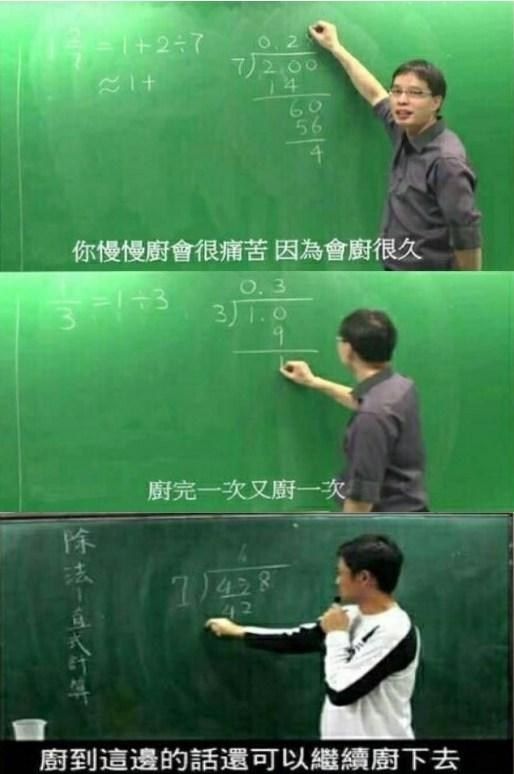 1 2/7 = 1 + 2 ÷ 7
≈ 1 +
0.2
7)2.00
14
60
56
4
你慢慢廚會很痛苦 因為會廚很久
1/3 = 1 ÷ 3
0.3
3)1.0
9
1
廚完一次又廚一次
除法-直式計算
6
7)428
42
廚到這邊的話還可以繼續廚下去